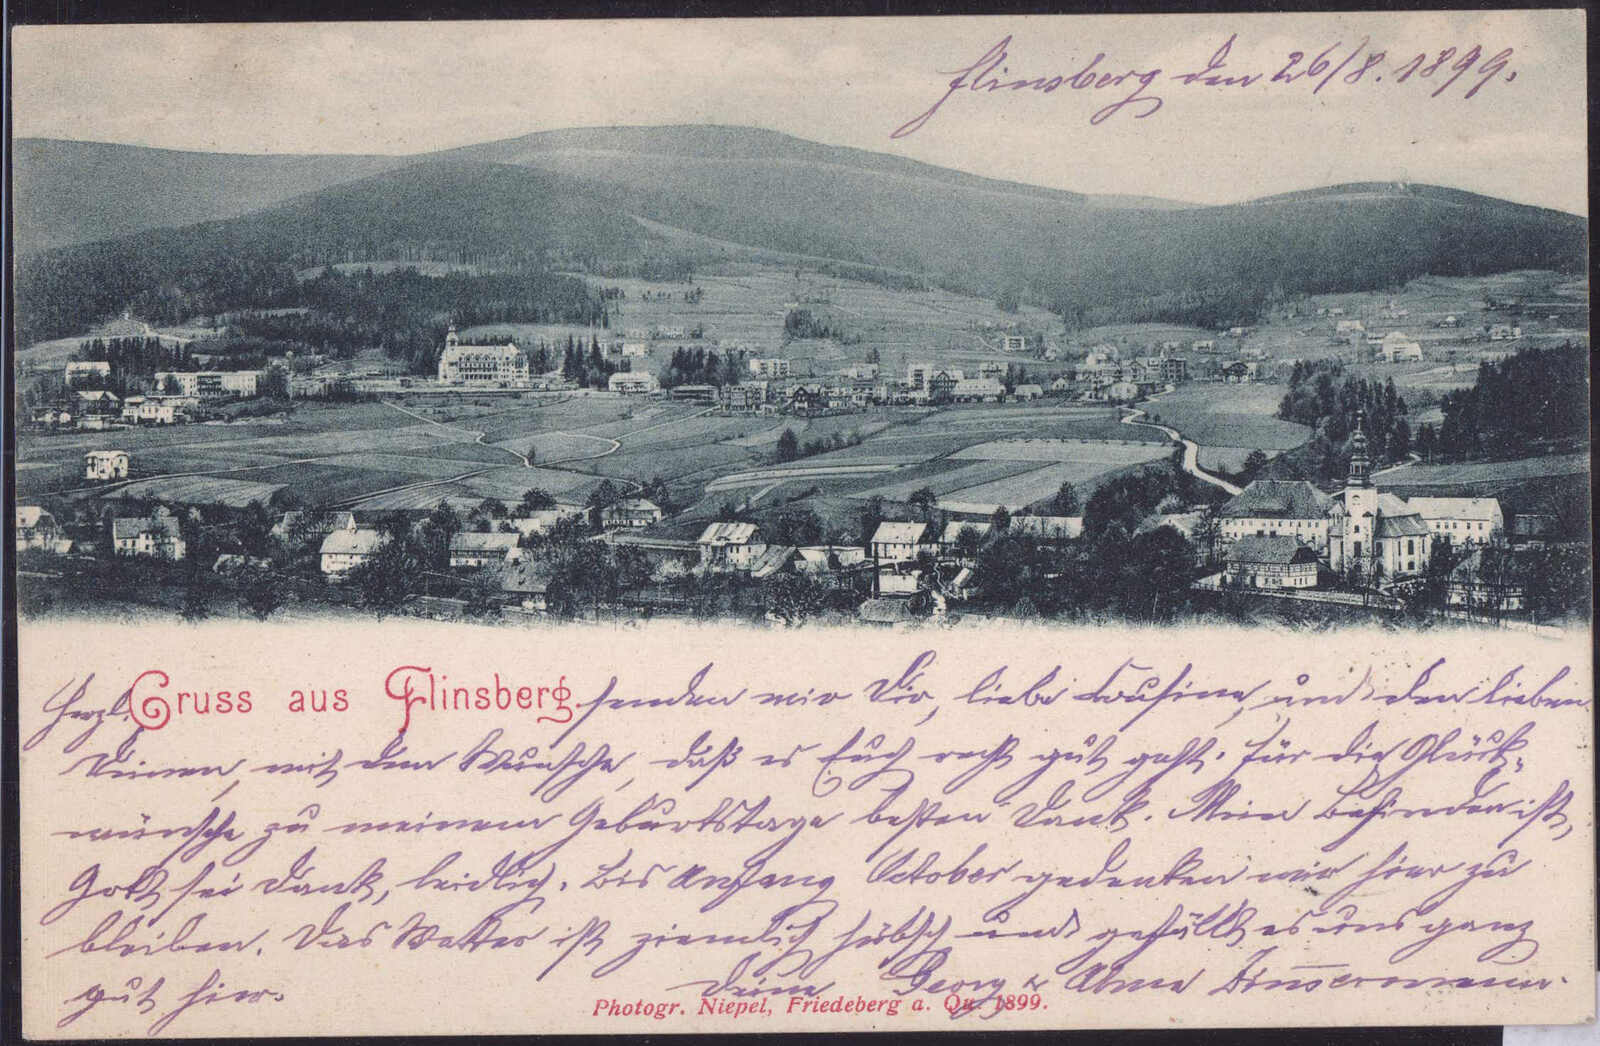 Flinsberg den 26/8. 1899.
Herzl. Gruss aus Flinsberg senden wir Dir, liebe Cousine, und den lieben
Deinen, mit dem Wunsche, daß es Euch recht gut geht. Für die Glück-
wünsche zu meinem Geburtstage besten Dank. Mein Befinden ist,
Gott sei Dank, leidlich. Bis Anfang October gedenken wir hier zu
bleiben. Das Wetter ist ziemlich hübsch und gefällt es uns ganz
gut hier. Deine Georg & Alma
Photogr. Niepel, Friedeberg a. Qu. 1899.